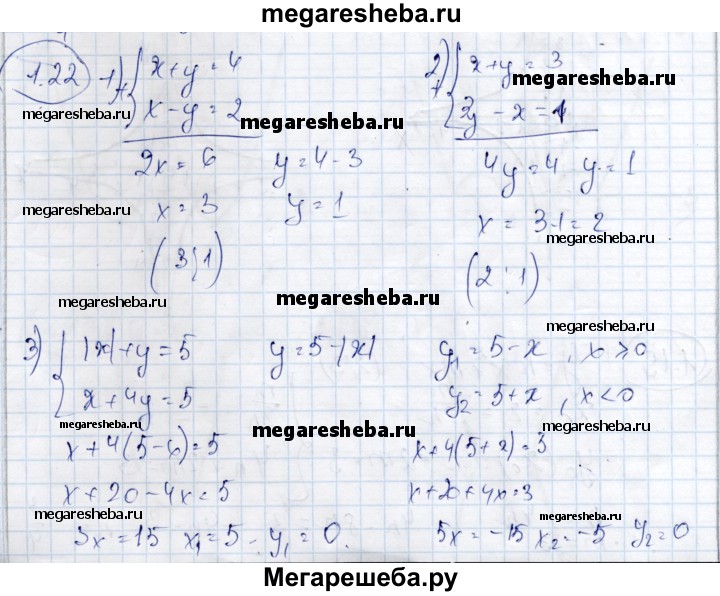 megaresheba.ru
1.22 1) + { x+y=4
x-y=2
2x=6 y=4-3
x=3 y=1
(3;1)
2) + { x+y=3
3y-x=1
4y=4 y=1
x=3-1=2
(2;1)
3) { |x|+y=5 y=5-|x| y₁=5-x, x≥0
x+4y=5 y₂=5+x, x<0
x+4(5-x)=5 x+4(5+x)=3
x+20-4x=5 x+20+4x=3
3x=15 x₁=5. y₁=0. 5x=-15 x₂=-5. y₂=0
megaresheba.ru
megaresheba.ru
megaresheba.ru
megaresheba.ru
megaresheba.ru
megaresheba.ru
megaresheba.ru
megaresheba.ru
megaresheba.ru
megaresheba.ru
megaresheba.ru
megaresheba.ru
megaresheba.ru
Мегарешеба.ру